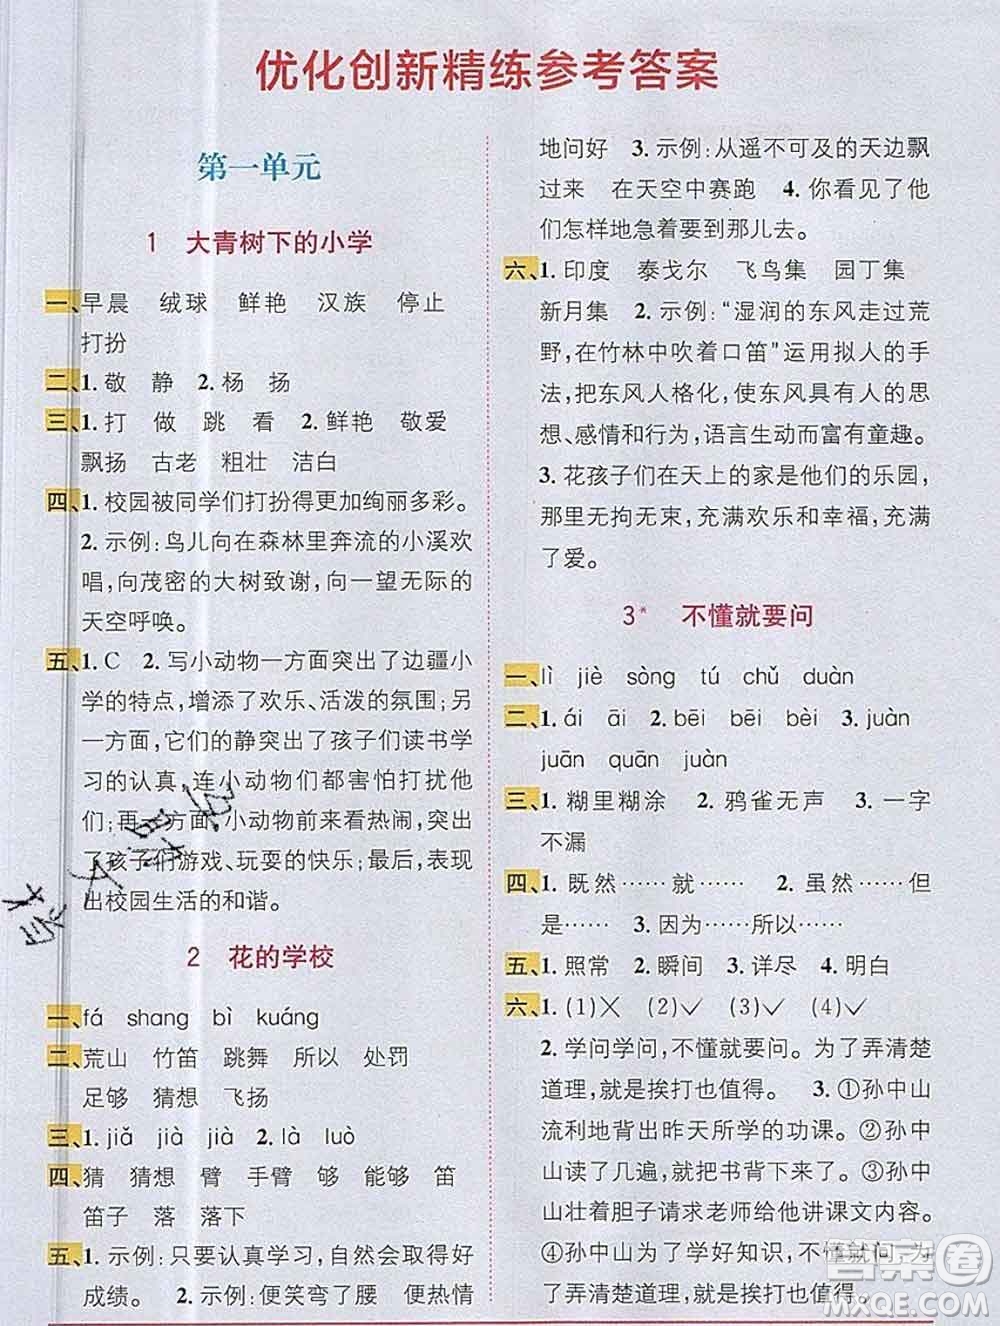 优化创新精练参考答案
第一单元
1 大青树下的小学
一、早晨 绒球 鲜艳 汉族 停止
打扮
二、1. 敬 静 2. 杨 扬
三、1. 打 做 跳 看 2. 鲜艳 敬爱
飘扬 古老 粗壮 洁白
四、1. 校园被同学们打扮得更加绚丽多彩。
2. 示例:鸟儿向在森林里奔流的小溪欢
唱,向茂密的大树致谢,向一望无际的
天空呼唤。
五、1. C 2. 写小动物一方面突出了边疆小
学的特点,增添了欢乐、活泼的氛围;
另一方面,它们的静突出了孩子们读书学
习的认真,连小动物们都害怕打扰他
们;再一方面,小动物前来看热闹,突出
了孩子们游戏、玩耍的快乐,表现
出校园生活的和谐。
2 花的学校
一、fá shang bì kuáng
二、荒山 竹笛 跳舞 所以 处罚
足够 猜想 飞扬
三、1. jiǎ jià jià 2. là luò
四、猜 猜想 臂 手臂 够 能够 笛
笛子 落 落下
五、1. 示例:只要认真学习,自然会取得好
成绩。 2. 示例:便笑弯了腰 便热情
地问好 3. 示例:从遥不可及的天边飘
过来 在天空中赛跑 4. 你看见了他
们怎样地急着要到那儿去。
六、1. 印度 泰戈尔 飞鸟集 园丁集
新月集 2. 示例:“湿润的东风走过荒
野,在竹林中吹着口笛”运用拟人的手
法,把东风人格化,使东风具有人的思
想、感情和行为,语言生动而富有童趣。
3. 花孩子们在天上的家是他们的乐园,
那里无拘无束,充满欢乐和幸福,充满
了爱。
3* 不懂就要问
一、lì jiè sòng tú chǔ duàn
二、1. ái āi 2. bēi bēi bèi 3. juàn
juān quān juàn
三、1. 糊里糊涂 2. 鸦雀无声 3. 一字
不漏
四、1. 既然……就…… 2. 虽然……但
是…… 3. 因为……所以……
五、1. 照常 2. 瞬间 3. 详尽 4. 明白
六、1. (1)✕ (2)✓ (3)✓ (4)✓
2. 学问学问,不懂就要问。为了弄清楚
道理,就是挨打也值得。 3. ①孙中山
流利地背出昨天所学的功课。②孙中
山读了几遍,就把书背下来了。③孙中
山壮着胆子请求老师给他讲课文内容。
④孙中山为了学好知识,不懂就问,为
了弄清楚道理,就是挨打也值得。
答案圈
MXQE.COM